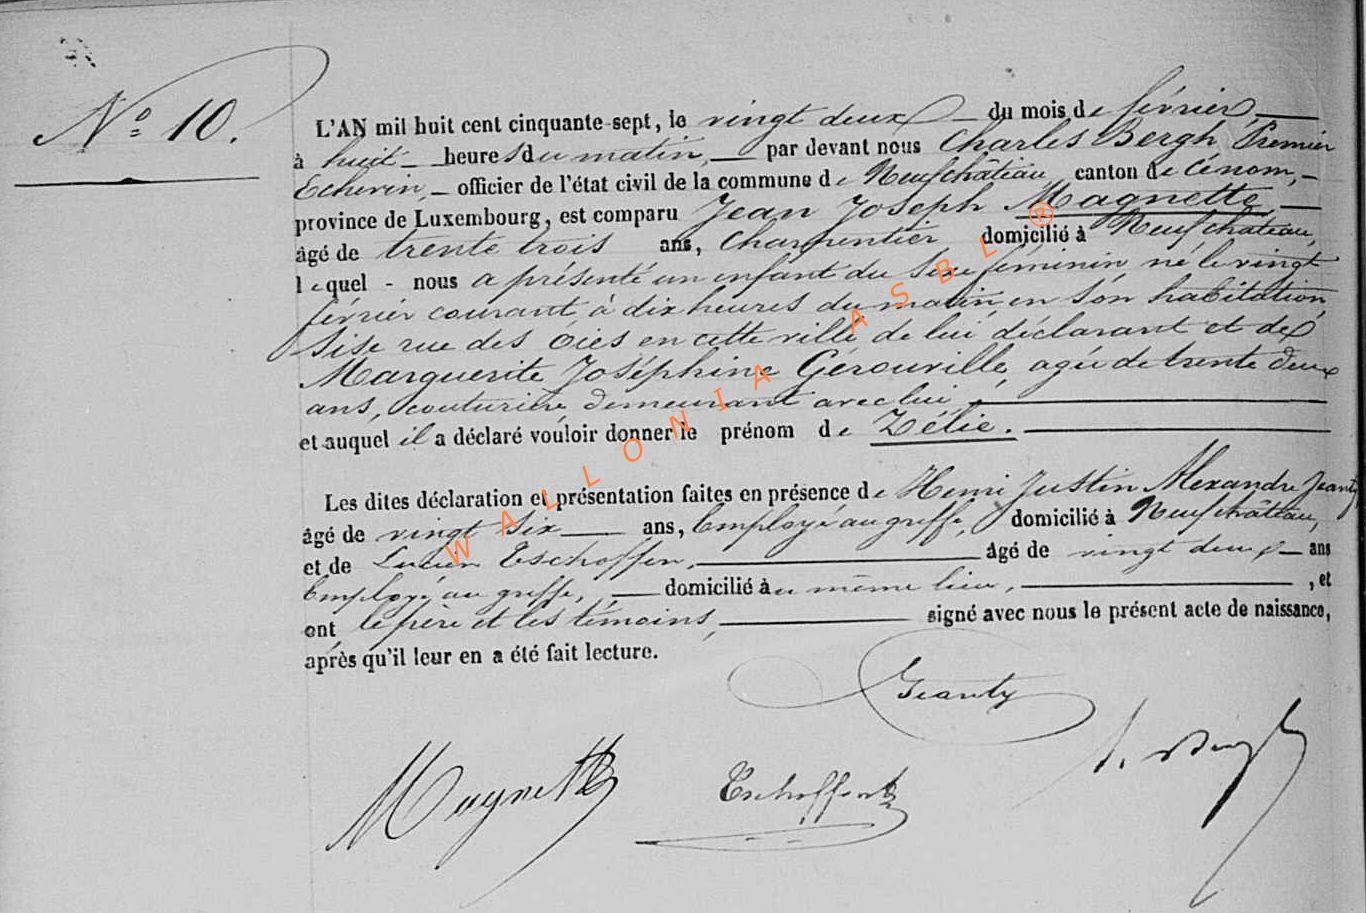 N° 10.
L'AN mil huit cent cinquante-sept, le vingt deux du mois de février,
à huit heures du matin, par devant nous Charles Bergh, Premier
Echevin, officier de l'état civil de la commune de Neufchâteau, canton de idem,
province de Luxembourg, est comparu Jean Joseph Magnette,
âgé de trente trois ans, Charpentier domicilié à Neufchâteau,
lequel nous a présenté un enfant du sexe féminin, né le vingt
février courant à dix heures du matin, en son habitation,
sise rue des Oies en cette ville, de lui déclarant et de
Marguerite Joséphine Gérouville, agée de trente deux
ans, couturière demeurant avec lui,
et auquel il a déclaré vouloir donner le prénom de Zélie.
Les dites déclaration et présentation faites en présence de Henri Justin Alexandre Jeanty
âgé de vingt six ans, Employé au greffe, domicilié à Neufchâteau,
et de Lucien Eschoffen, âgé de vingt deux ans
Employé au greffe, domicilié au même lieu, , et
ont le père et les témoins, signé avec nous le présent acte de naissance,
après qu'il leur en a été fait lecture.
Jeanty
Magnette Eschoffen
WALLONIA ASBL ®